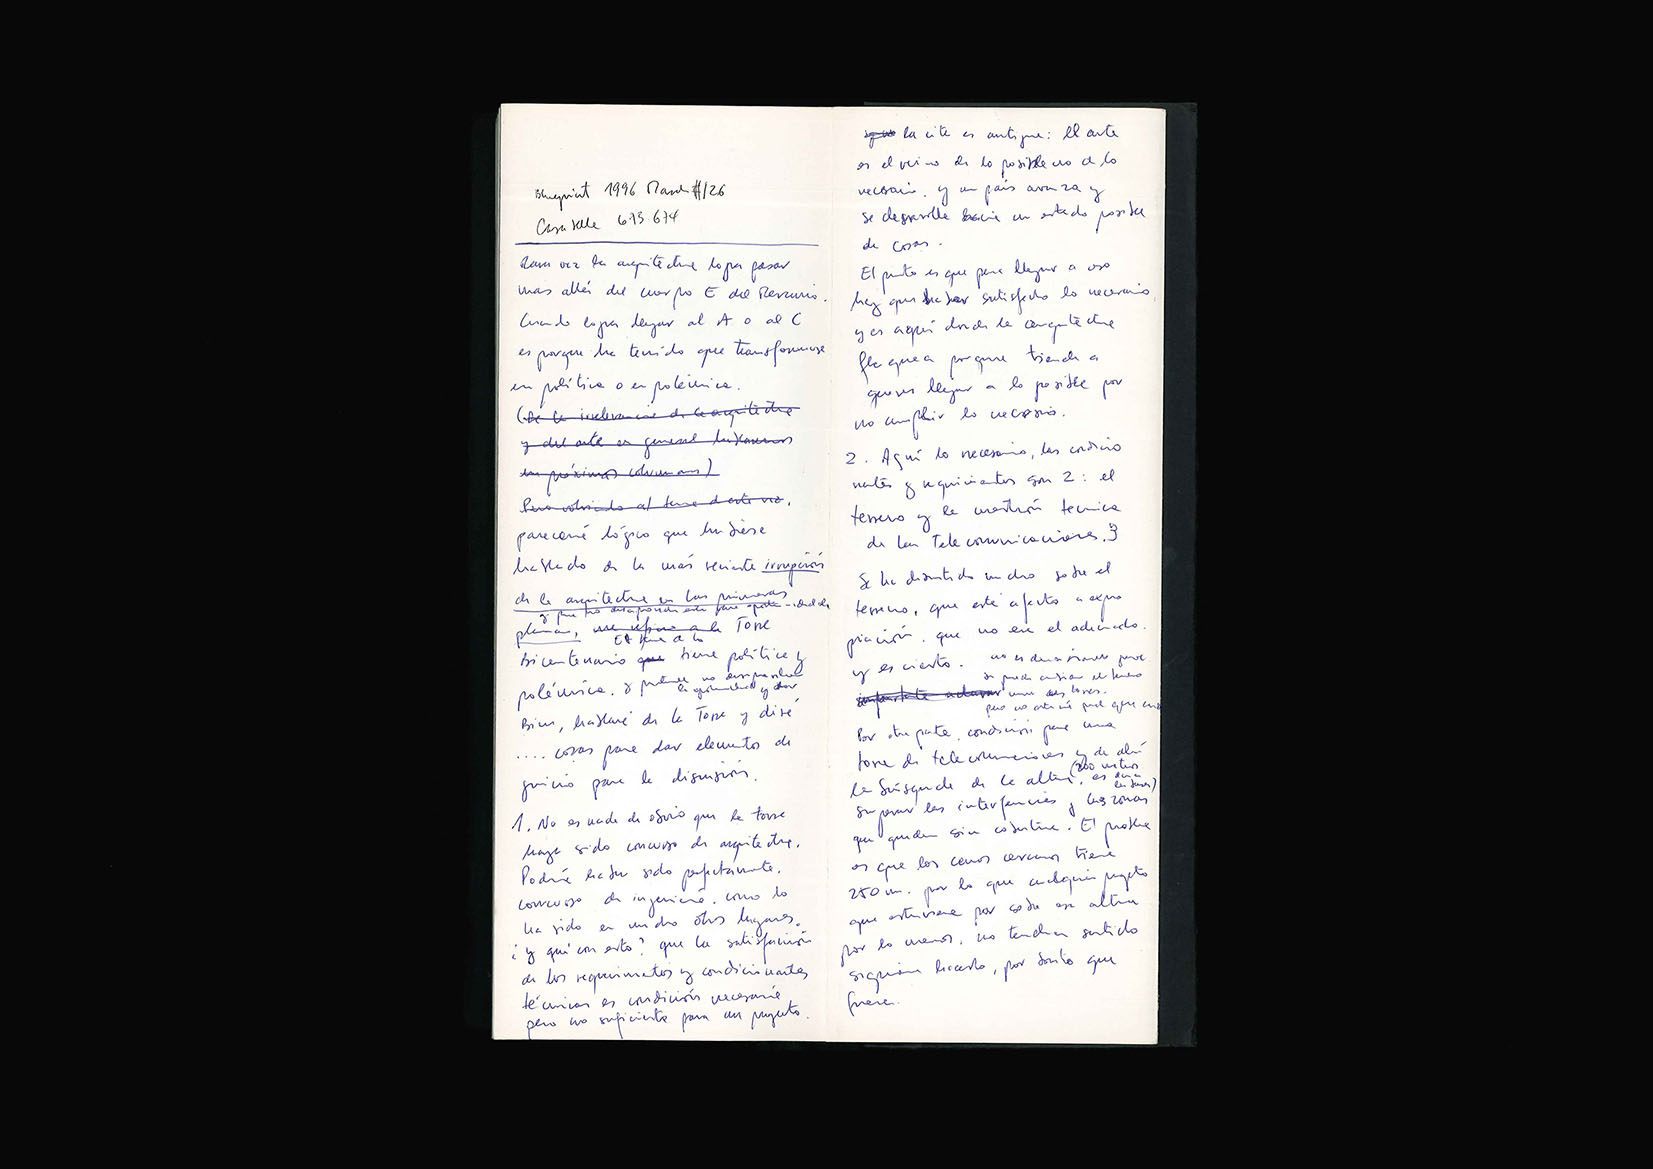 Blueprint 1996 March #126
Casabella 673-674
Rara vez la arquitectura logra pasar
mas allá del cuerpo E del Mercurio.
Cuando logra llegar al A o al C
es porque ha tenido que transformarse
en política o en polémica.
(De la irrelevancia de la arquitectura
y del arte en general hablaremos
en próximas columnas)
Pero volviendo al tema de esta vez,
parecería lógico que hubiese
hablado de la más reciente irrupción
de la arquitectura en las primeras
planas, me refiero a la Torre
Bicentenario que tiene política y
polémica. y
Bien, hablaré de la Torre y diré
.... cosas para dar elementos de
juicio para la discusión.
1. No es nada de obvio que la torre
haya sido concurso de arquitectura.
Podría haber sido perfectamente,
concurso de ingeniería, como lo
ha sido en mucho otros lugares.
¿y qué con esto? que la satisfacción
de los requerimientos y condicionantes
técnicas es condición necesaria
pero no suficiente para un proyecto.
la cita es antigua: El arte
es el reino de lo posible no de lo
necesario. y un país avanza y
se desarrolla hacia un estado posible
de cosas.
El punto es que para llegar a eso
hay que haber satisfecho lo necesario
y es aquí donde la arquitectura
flaquea porque tiende a
querer llegar a lo posible por
no cumplir lo necesario.
2. Aquí lo necesario, las condicio
nantes y requerimientos son 2: el
terreno y la cuestión técnica
de las Telecomunicaciones.
Se ha discutido mucho sobre el
terreno, que está afecto a expro
piación, que no era el adecuado.
y es cierto.
Por otra parte, condición para una
torre de telecomunicaciones y de ahí
la búsqueda de la altura, es
(200 metros
superar las interferencias y las zonas
que quedan sin cobertura. El problema
es que los cerros cercanos tiene
250 m. por lo que cualquier proyecto
que estuviese por sobre esa altura
por lo menos, no tendría sentido
siquiera hacerlo, por bonito que
fuera.